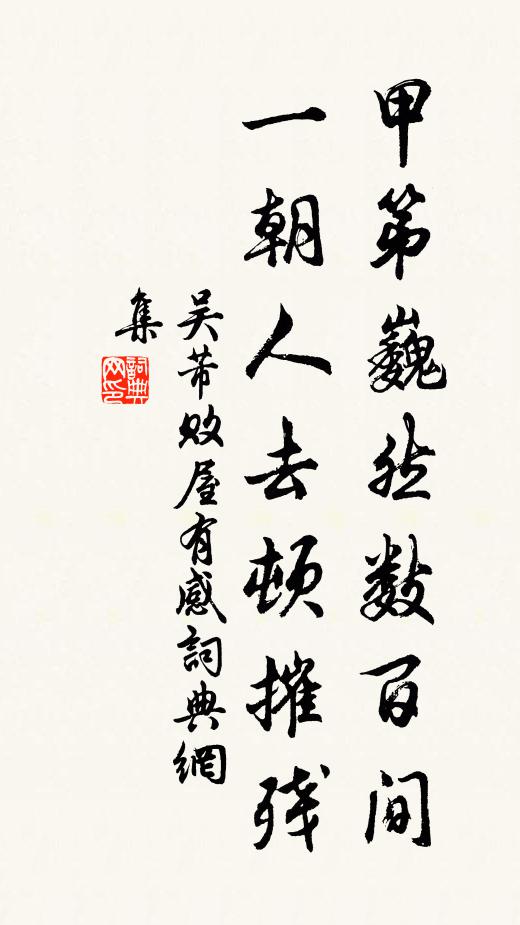 甲第巍然数百间
一朝人去顿摧残
吴芾败屋有感詞典網
集
詞典
网印